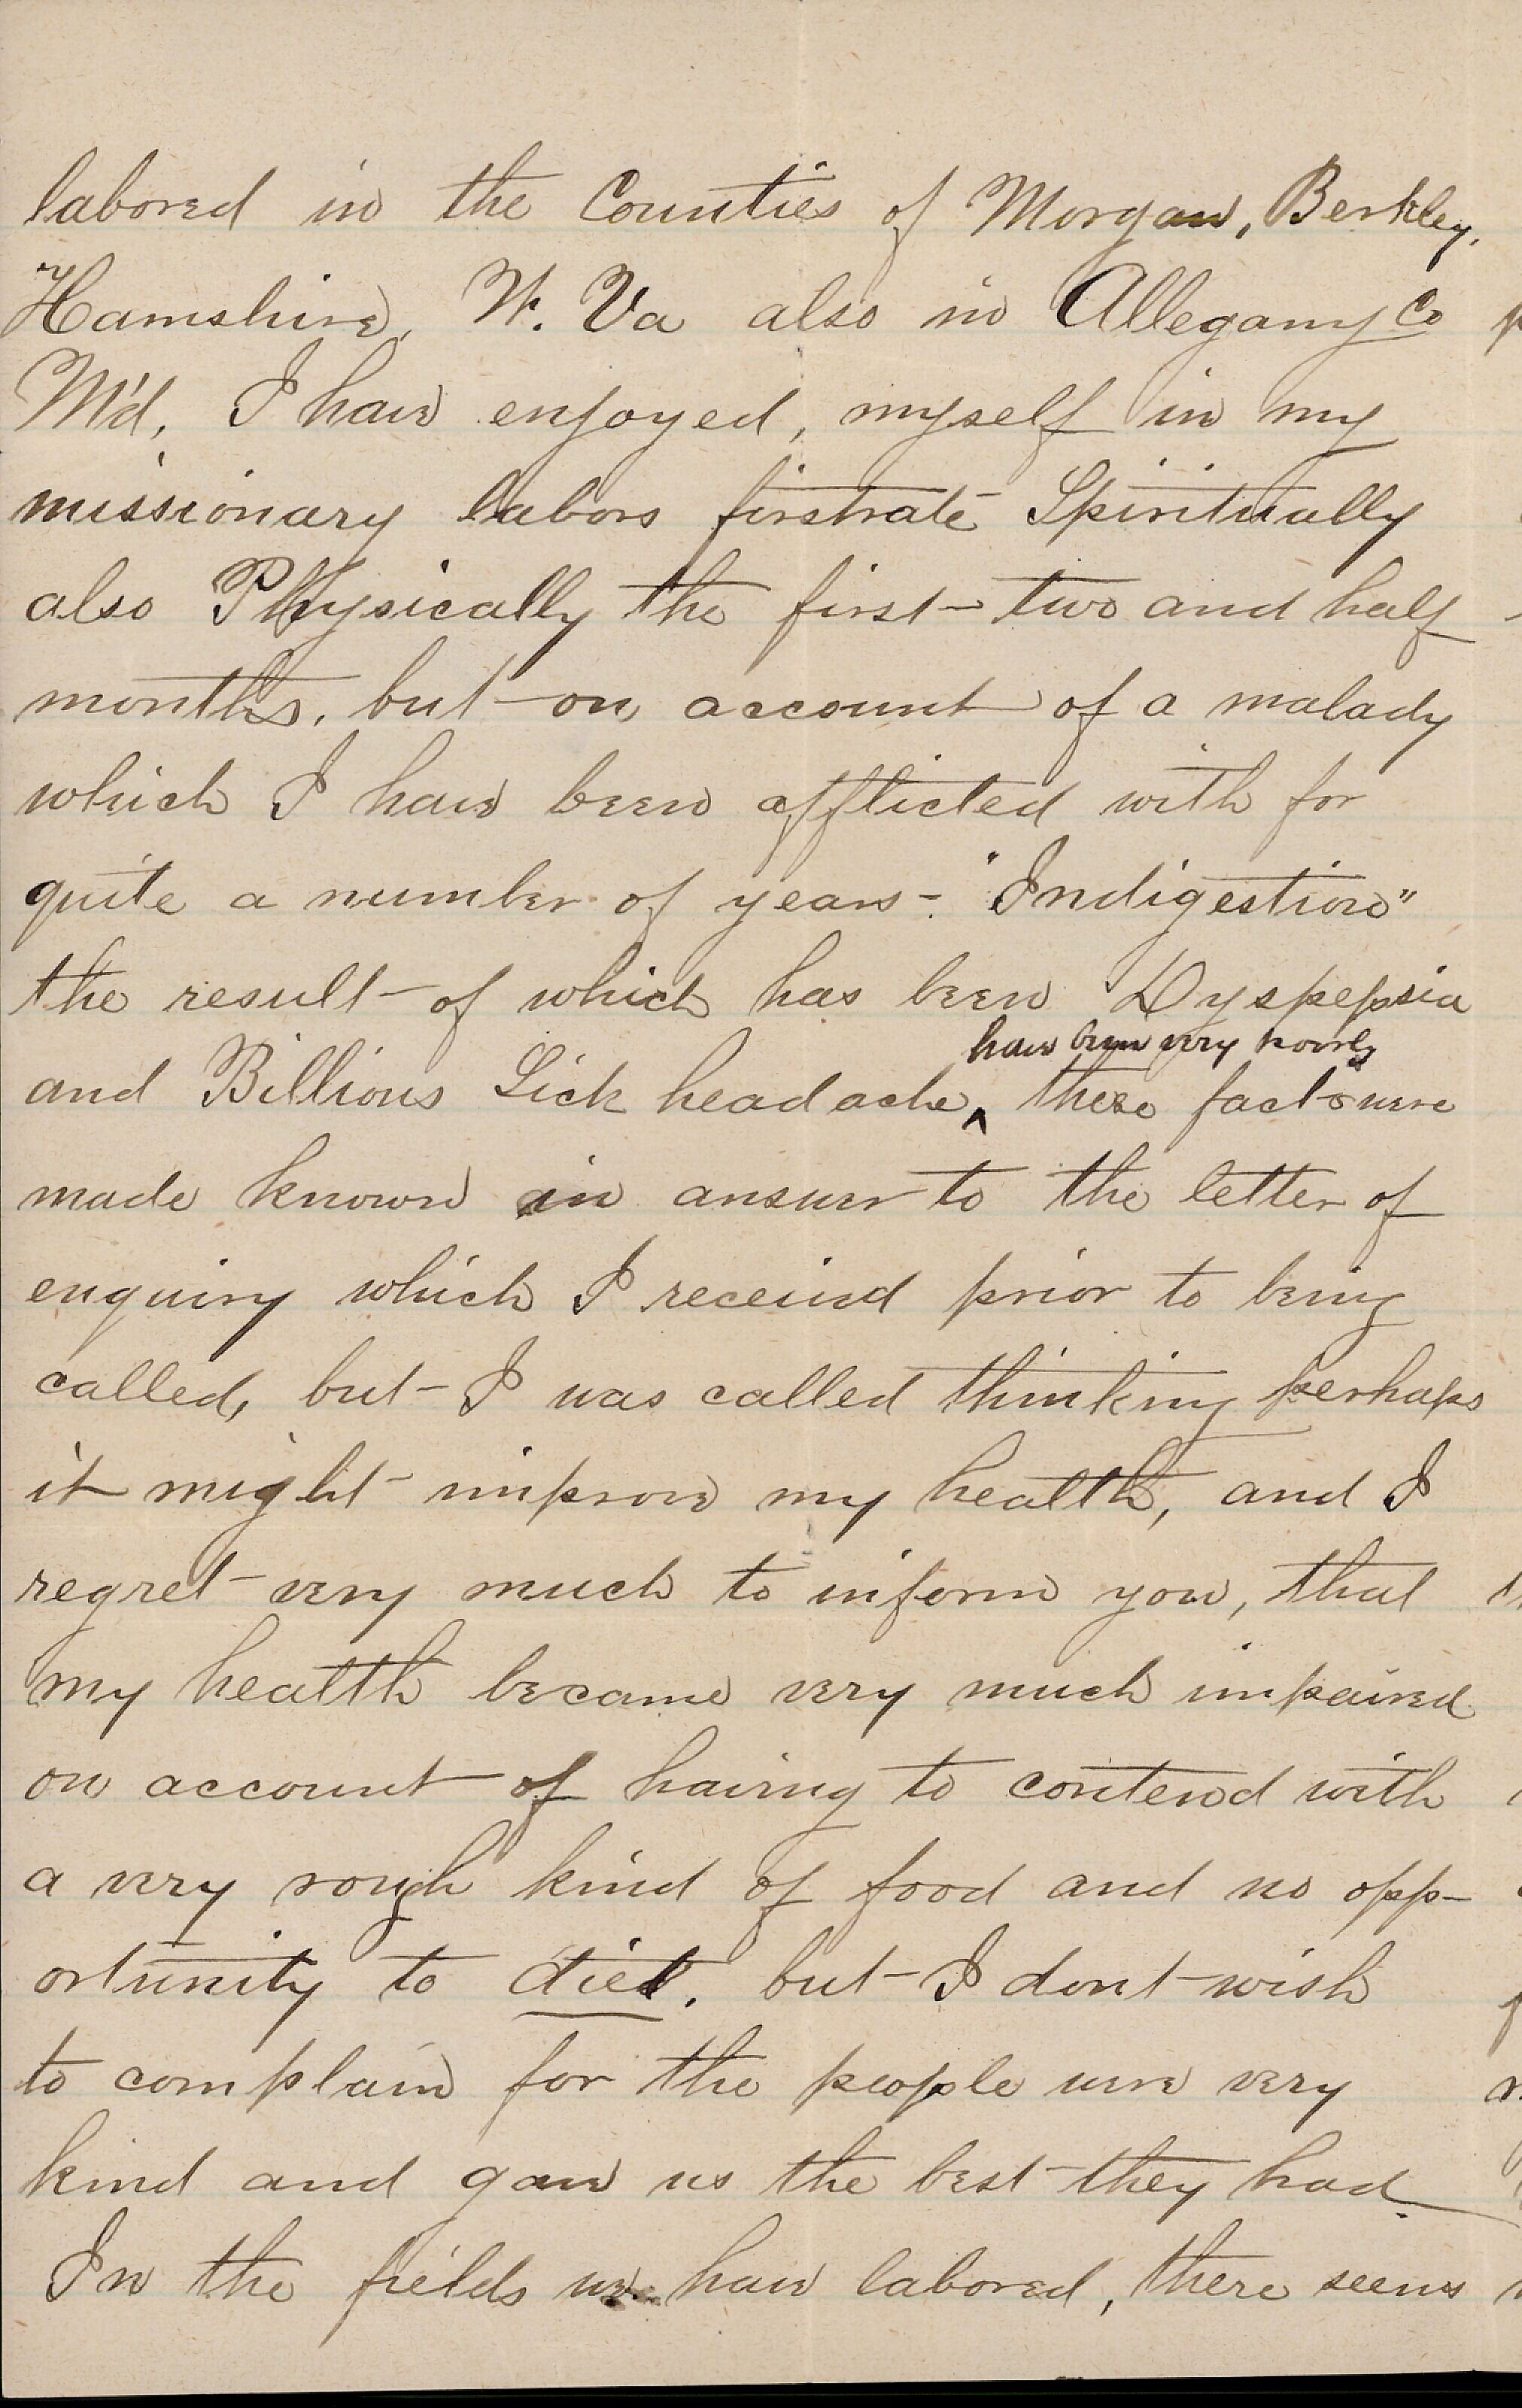 labored in the Counties of Morgan, Berkley,
Hamshire, W. Va also in Allegany Co
M'd, I have enjoyed, myself in my
missionary labors firstrate Spiritually
also Physically the first two and half
months, but on account of a malady
which I have been afflicted with for
quite a number of years - "Indigestion"
the result of which has been Dyspepsia
have been very poorly
and Billious Sick headache, ^ these facts were
made known in answer to the letter of
enquiry which I received prior to being
called, but I was called thinking perhaps
it might improve my health, and I
regret very much to inform you, that
my health became very much impaired
on account of having to contend with
a very rough kind of food and no opp-
ortunity to diet. but I dont wish
to complain for the people were very
kind and gave us the best they had.
In the fields we have labored, there seems